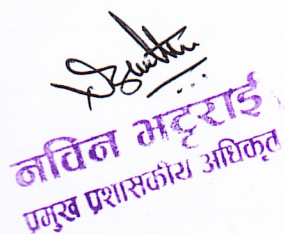 नविन भट्टराई
प्रमुख प्रशासकीय अधिकृत